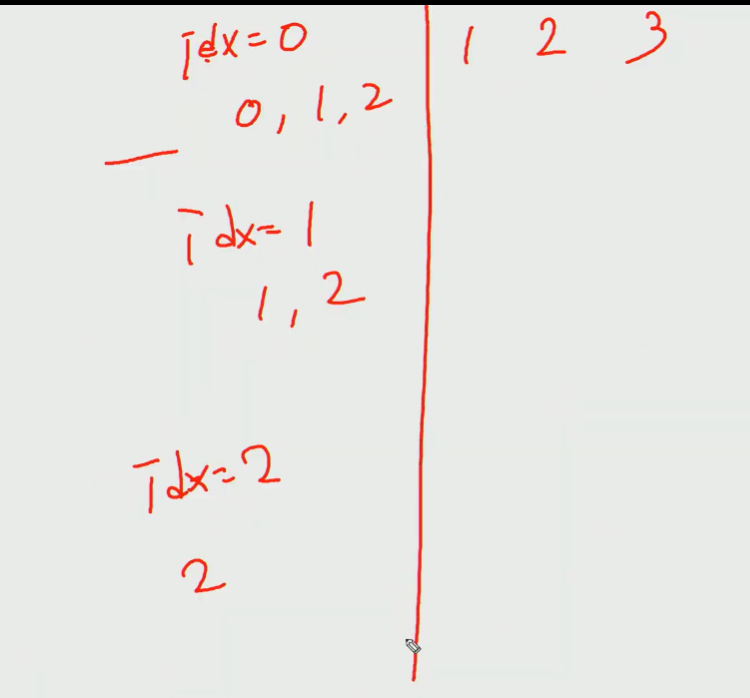 Idx=0
0, 1, 2
Idx=1
1, 2
Idx=2
2
1 2 3